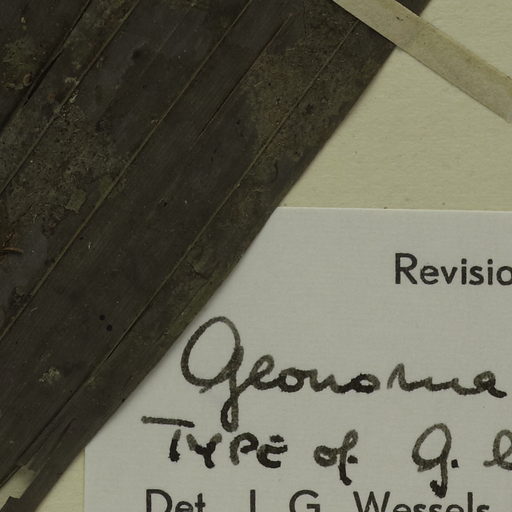 Revisio
Geonoma
TYPE of G.
Det. J. G. Wessels